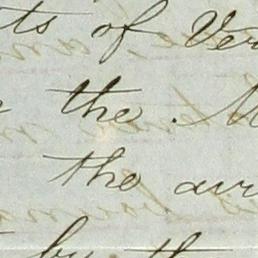 ts of Ver
the . M
the
by th